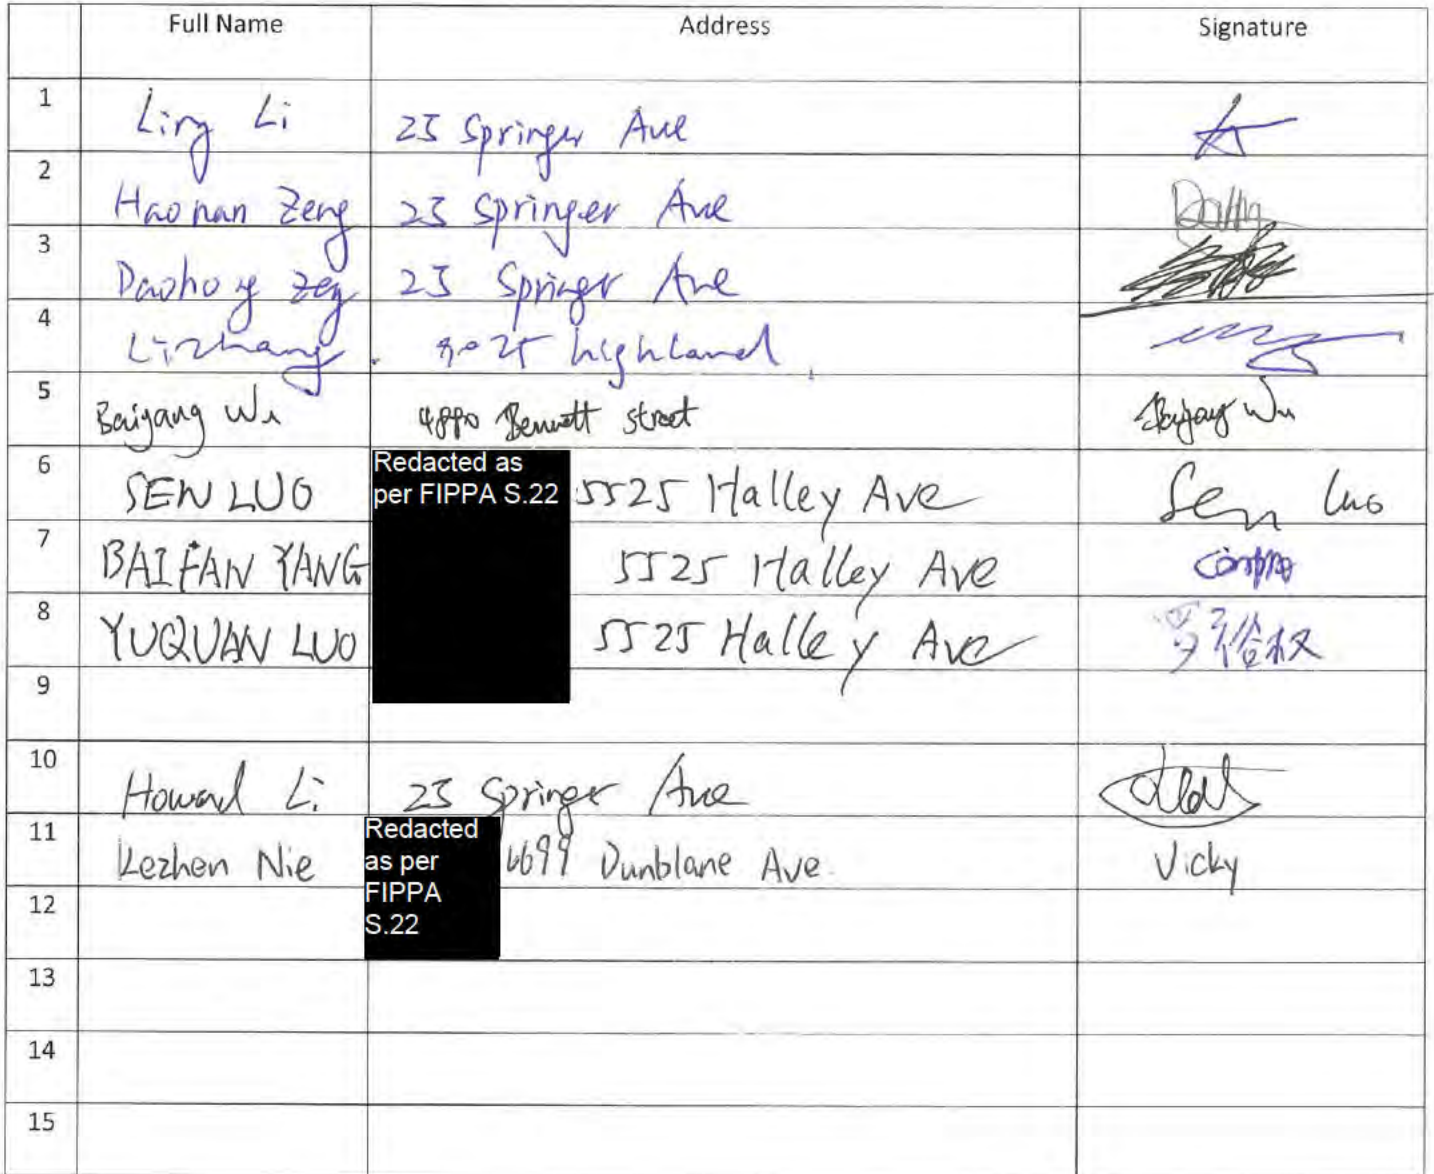 Full Name Address Signature
1 Ling Li 25 Springer Ave
2 Haonan Zeng 25 Springer Ave
3 25 Springer Ave
4 highland
5 Baigang Wu Bennett street Baigang Wu
6 SEN LUO Redacted as per FIPPA S.22 5525 Halley Ave Sen Luo
7 BAIFAN YANG 5525 Halley Ave
8 YUQUAN LUO 5525 Halley Ave
9
10 Howard Li 25 Springer Ave
11 Kezhen Nie Redacted as per FIPPA S.22 6699 Dunblane Ave Vicky
12
13
14
15